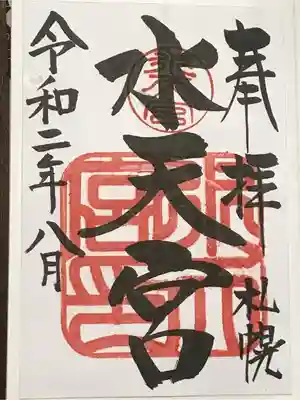 奉拝
札幌
水天宮
令和二年八月